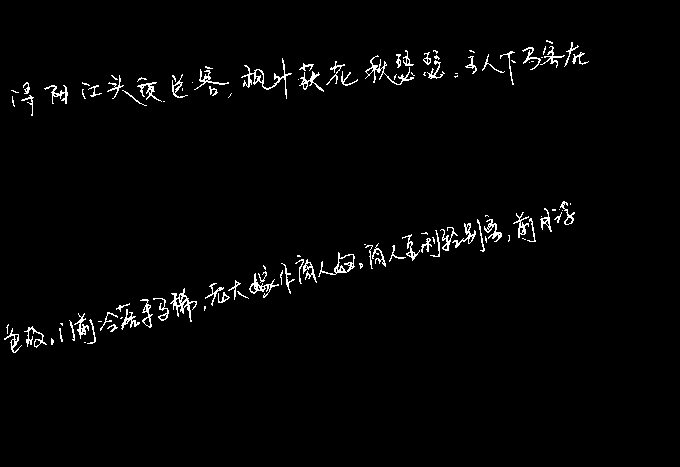 浔阳江头夜送客,枫叶荻花秋瑟瑟。主人下马客在
色故。门前冷落车马稀,老大嫁作商人妇。商人重利轻别离,前月浮